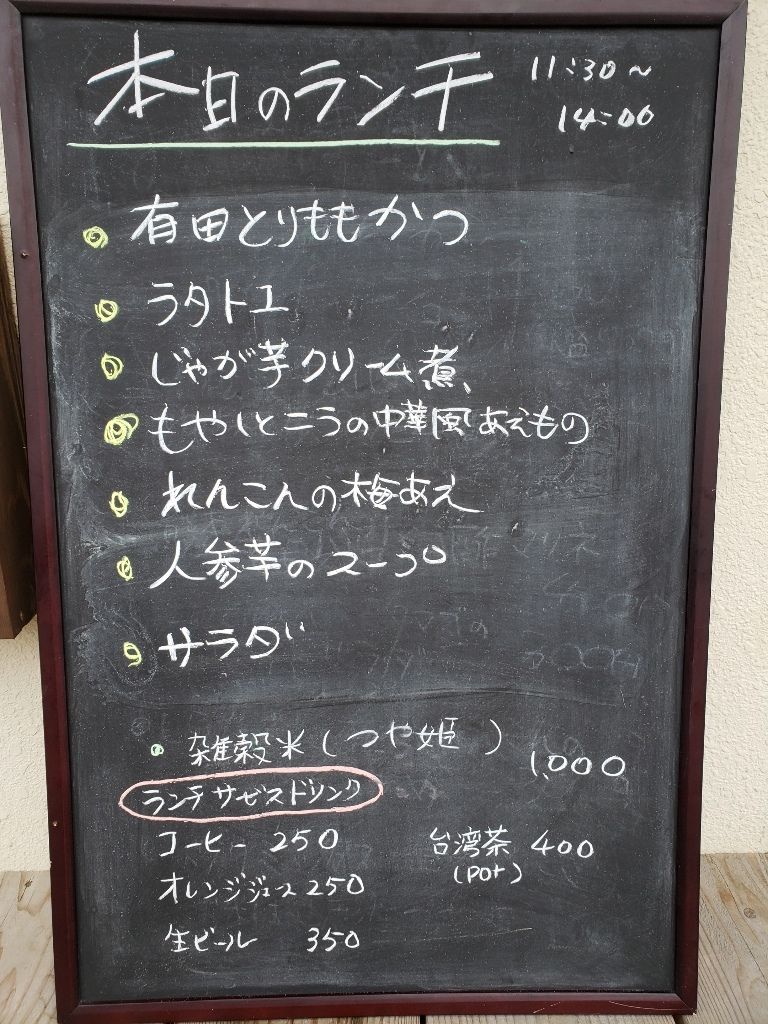 本日のランチ 11:30～
14:00
有田とりももかつ
ラタトエ
じゃが芋クリーム煮、
もやしとニラの中華風あえもの
れんこんの梅あえ
人参芋のスープ
サラダ
雑穀米(つや姫) 1,000
ランチサービスドリンク
コーヒー 250 台湾茶 400
(pot)
オレンジジュース 250
生ビール 350